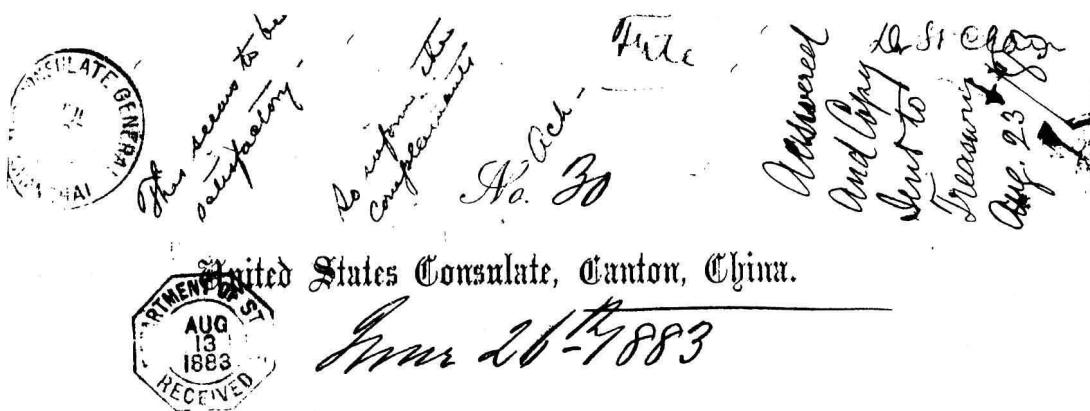 CONSULATE GENERAL
HAI
This seems to be
satisfactory -
So inform the
complainants
Ack -
File
No. 30
Answered
and Copy
Sent to
Treasury
Aug. 23
Dr St Clair
United States Consulate, Canton, China.
ARTMENT OF ST
AUG
13
1883
RECEIVED
June 26th 1883